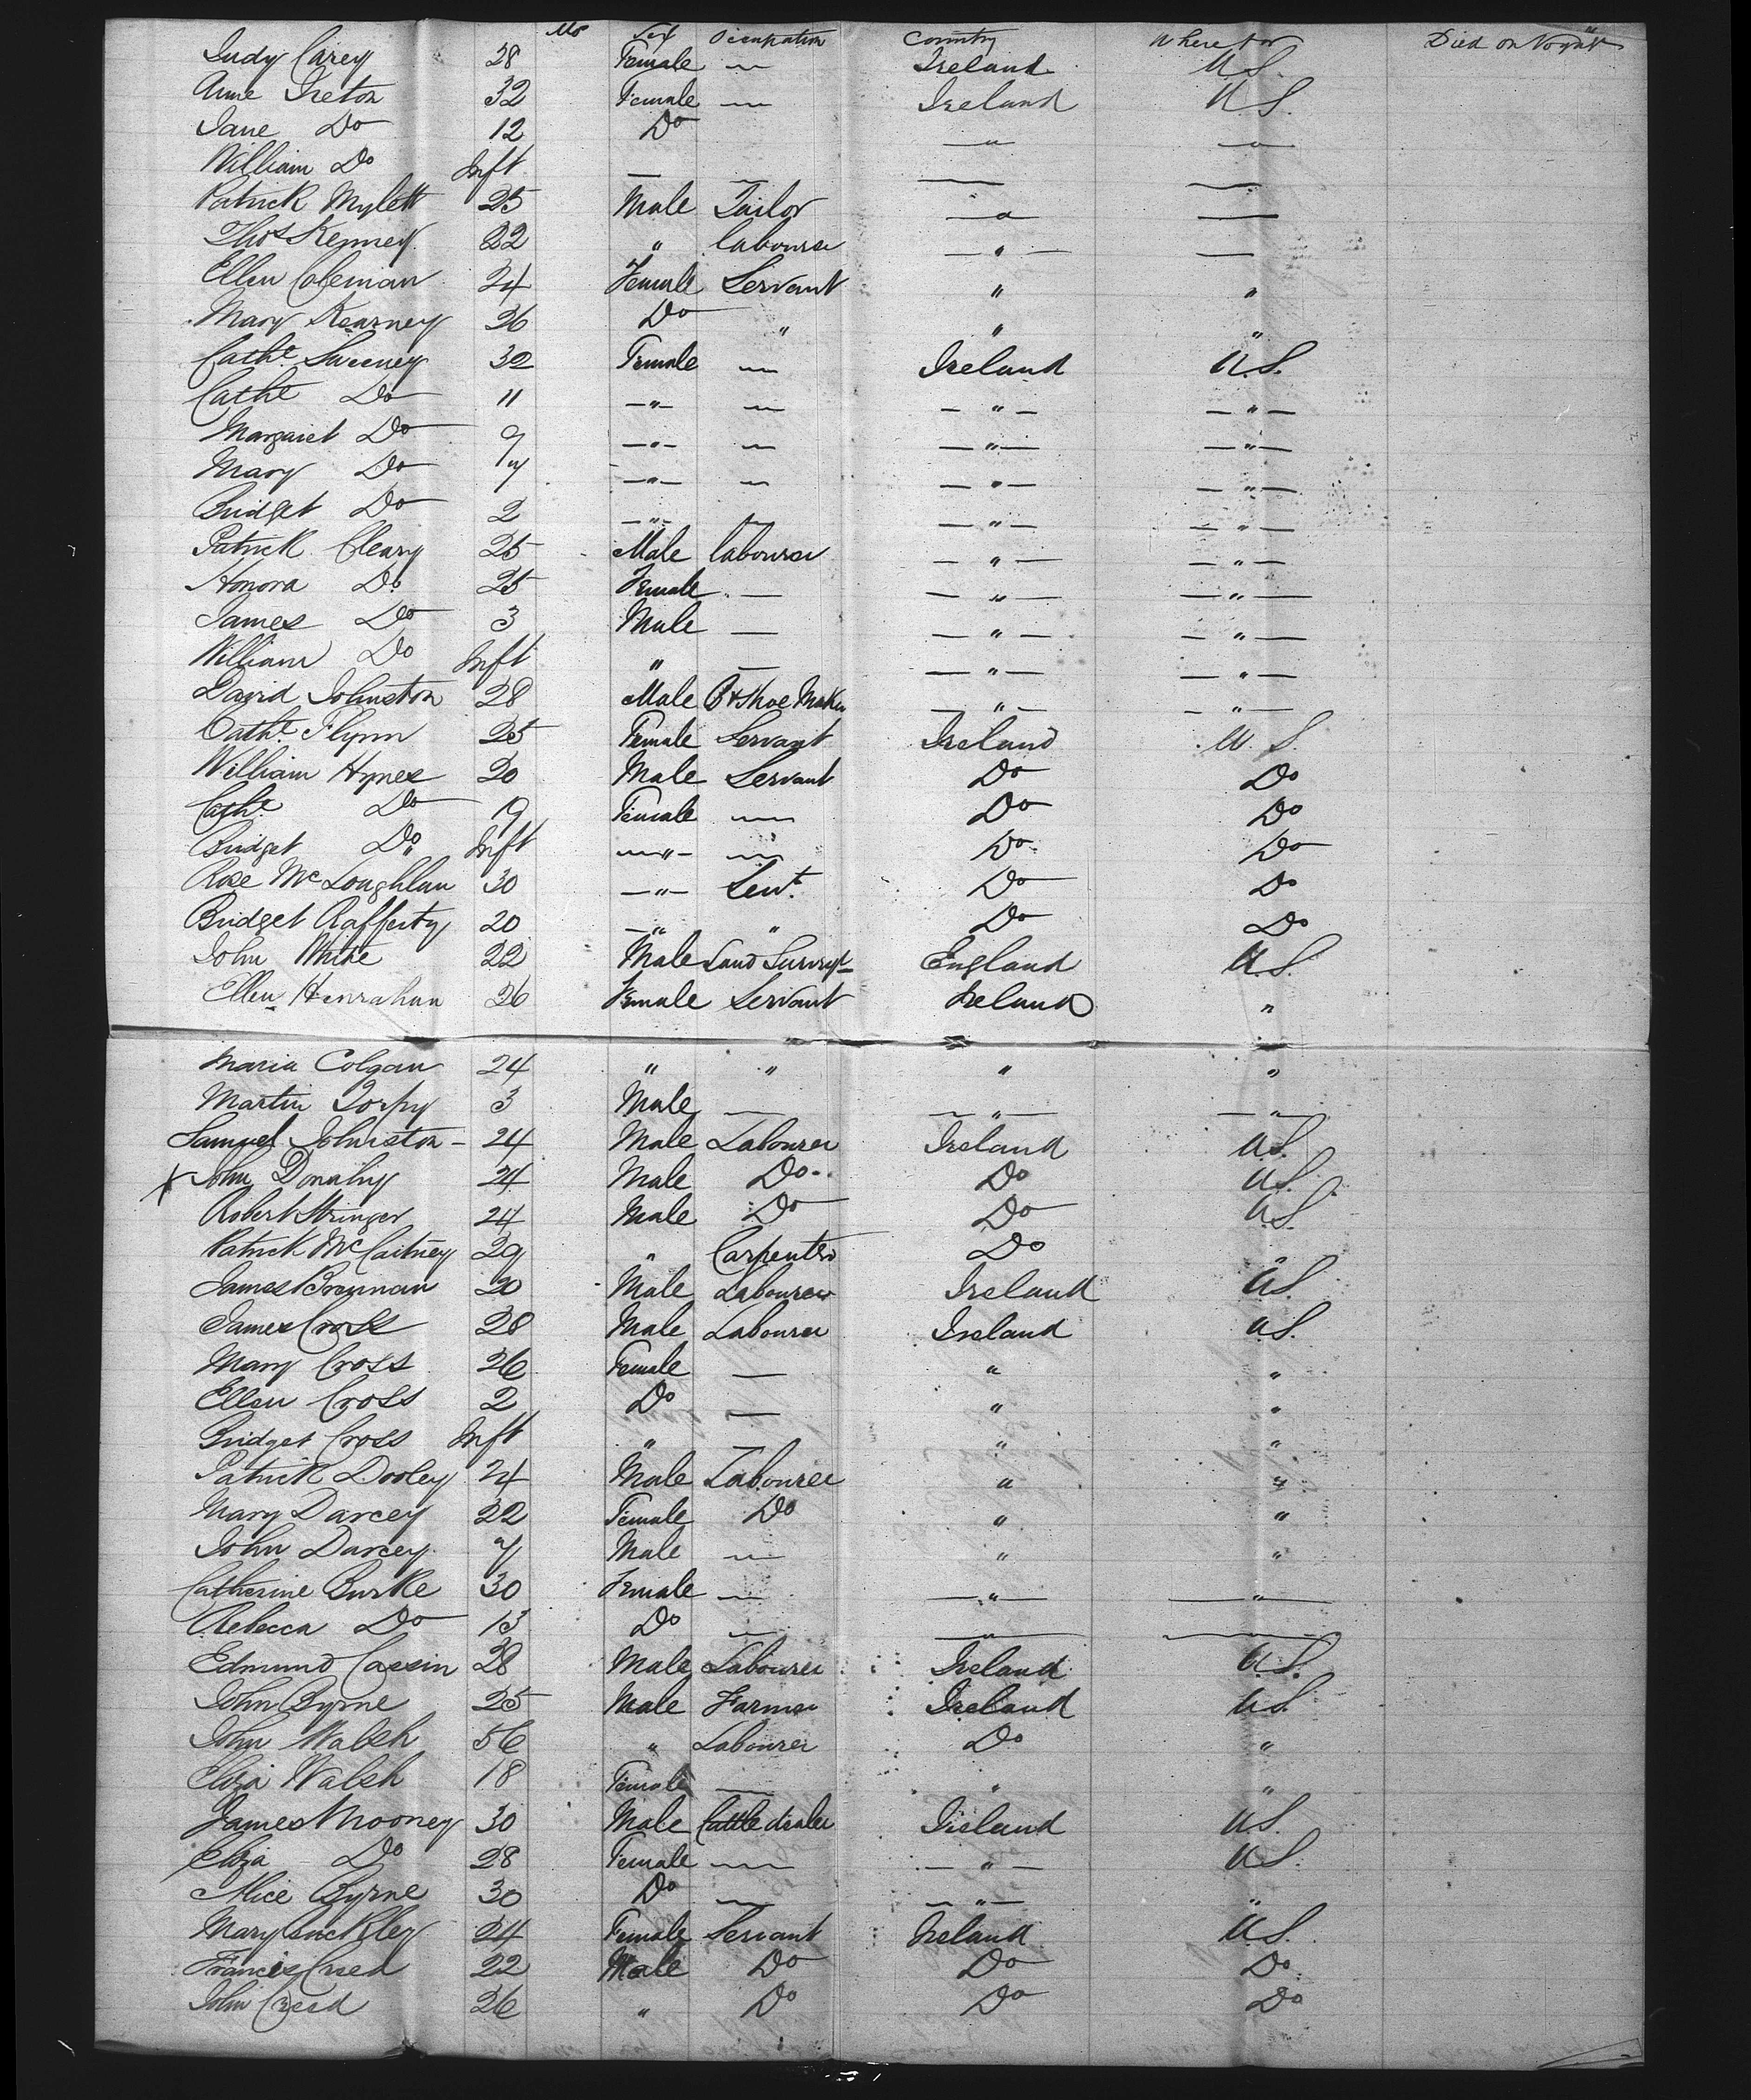 Mos Sex Occupation Country Where to Died on Voyage
Judy Carey 28 Female — Ireland U.S.
Anne Ireton 32 Female — Ireland U.S.
Jane Do 12 Do — " — — " —
William Do Inft — — — —
Patrick Mylett 25 Male Tailor — " — —
Thos Kenney 22 " labourer — " — —
Ellen Coleman 24 Female Servant " "
Mary Kearney 26 Do " " "
Cathe Sweeney 32 Female — Ireland U.S.
Cathe Do 11 — " — — — " — — " —
Margaret Do 9 — " — — — " — — " —
Mary Do 7 — " — — — " — — " —
Bridget Do 2 — " — — — " — — " —
Patrick Cleary 25 Male labourer — " — — " —
Honora Do 25 Female — — " — — " —
James Do 3 Male — — " — — " —
William Do Inft " — — " — — " —
David Johnston 28 Male B & Shoe Maker — " — — " —
Cathe Flynn 25 Female Servant Ireland U.S.
William Hynes 20 Male Servant Do Do
Cathe Do 19 Female — Do Do
Bridget Do Inft — " — — Do Do
Rose McLoughlan 30 — " — Sevt. Do Do
Bridget Rafferty 20 — " " Do Do
John White 22 Male Land Survey- England U.S.
Ellen Hanrahan 26 Female Servant Ireland "
Maria Colgan 24 " " " "
Martin Torpy 3 Male — — " — — " —
Samuel Johnston - 24 Male Labourer Ireland U.S.
x John Donahy 24 Male Do Do U.S.
Robert Stringer 24 Male Do Do U.S.
Patrick McCartney 29 " Carpenter Do "
James Brennan 20 Male Labourer Ireland U.S.
James Cross 28 Male Labourer Ireland U.S.
Mary Cross 26 Female — " "
Ellen Cross 2 Do — " "
Bridget Cross Inft " — " "
Patrick Dooley 24 Male Labourer " "
Mary Darcey 22 Female Do " "
John Darcey 7 Male — " "
Catherine Burke 30 Female — — " — — " —
Rebecca Do 13 Do — — " — — " —
Edmund Cassin 28 Male Labourer Ireland U.S.
John Byrne 25 Male Farmer Ireland U.S.
John Walsh 56 " Labourer Do "
Eliza Walsh 18 Female — " "
James Mooney 30 Male Cattle dealer Ireland U.S.
Eliza Do 28 Female — — " — U.S.
Alice Byrne 30 Do — — " — "
Mary Buckley 24 Female Servant Ireland U.S.
Francis Creed 22 Male Do Do Do
John Creed 26 " Do Do Do